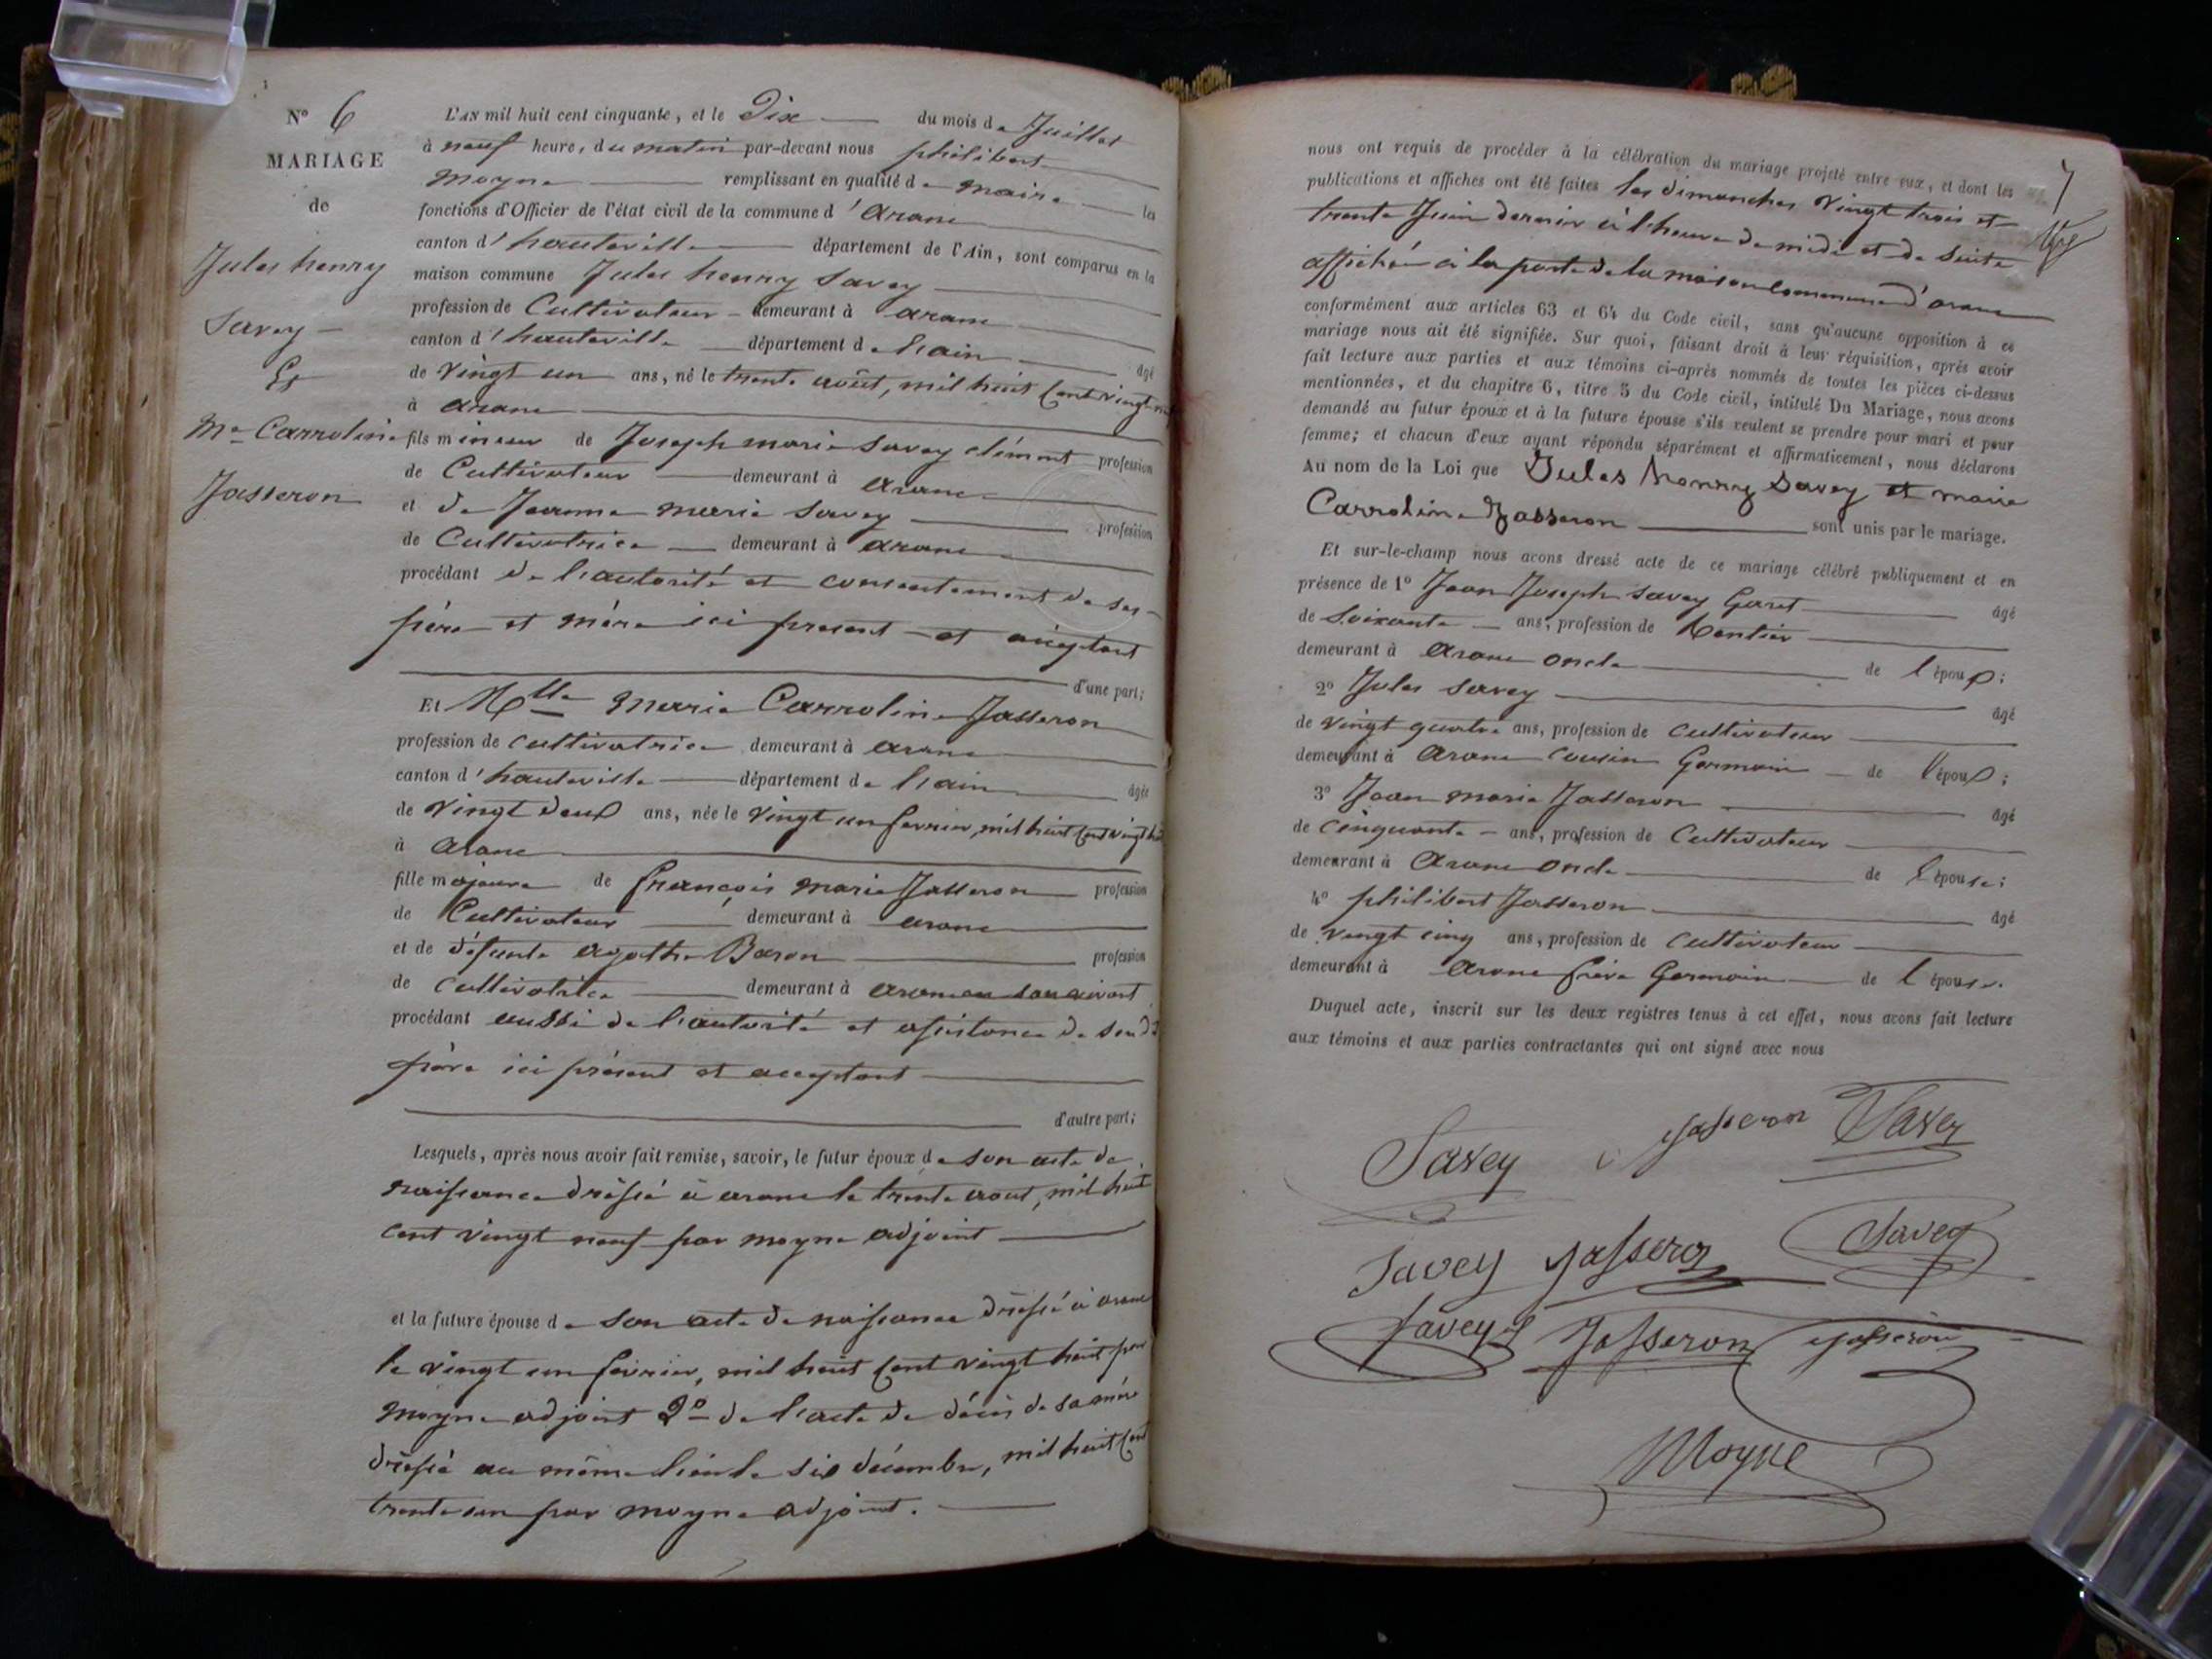 N° 6
MARIAGE
de
Jules henry
Savey
Et
Mie Carroline
Jasseron
L'AN mil huit cent cinquante, et le Dix du mois de Juillet
à neuf heure, du matin par-devant nous philibert
moyne remplissant en qualité de maire les
fonctions d'Officier de l'état civil de la commune d'aranc
canton d'hauteville département de l'Ain, sont comparus en la
maison commune Jules henry Savey
profession de Cultivateur demeurant à aranc
canton d'hauteville département de l'ain âgé
de vingt un ans, né le trente août, mil huit cent vingt
à aranc
fils mineur de Joseph marie Savey clément profession
de Cultivateur demeurant à aranc
et de Jeanne marie Savey profession
de Cultivatrice demeurant à aranc
procédant de l'autorité et consentement de ses
père et mère ici present et acceptant
d'une part;
Et Mlle marie Carroline Jasseron
profession de cultivatrice demeurant à aranc
canton d'hauteville département de l'ain âgée
de vingt deux ans, née le vingt un fevrier, mil huit cent vingt huit
à aranc
fille majeure de françois marie Jasseron profession
de Cultivateur demeurant à aranc
et de défunte agathe Baron profession
de cultivatrice demeurant à aranc en son vivant
procédant aussi de l'autorité et assistance de son dt
père ici présent et acceptant
d'autre part;
Lesquels, après nous avoir fait remise, savoir, le futur époux de son acte de
naissance dréssé à aranc le trente aout, mil huit
cent vingt neuf par moyne adjoint
et la future épouse de son acte de naissance dréssé à aranc
le vingt un févrierr, mil huit cent vingt huit par
moyne adjoint 2° de l'acte de décès de sa mère
dréssé au même lieu le six décembre, mil huit cent
trente un par moyne adjoint.
7
nous ont requis de procéder à la célébration du mariage projeté entre eux, et dont les
publications et affiches ont été faites les dimanches vingt trois et
trente Juin dernier à l'heure de midi et de suite
affichée à la porte de la maison commune d'aranc
conformément aux articles 63 et 64 du Code civil, sans qu'aucune opposition à ce
mariage nous ait été signifiée. Sur quoi, faisant droit à leur réquisition, après avoir
fait lecture aux parties et aux témoins ci-après nommés de toutes les pièces ci-dessus
mentionnées, et du chapitre 6, titre 5 du Code civil, intitulé Du Mariage, nous avons
demandé au futur époux et à la future épouse s'ils veulent se prendre pour mari et pour
femme; et chacun d'eux ayant répondu séparément et affirmativement, nous déclarons
Au nom de la Loi que Jules henry Savey et marie
Carroline Jasseron sont unis par le mariage.
Et sur-le-champ nous avons dressé acte de ce mariage célébré publiquement et en
présence de 1° Jean Joseph Savey Garet âgé
de Soixante ans, profession de Rentier
demeurant à Aranc oncle de l'époux;
2° Jules Savey âgé
de vingt quatre ans, profession de cultivateur
demeurant à Aranc cousin Germain de l'époux;
3° Jean marie Jasseron âgé
de cinquante ans, profession de Cultivateur
demeurant à Aranc oncle de l'épouse;
4° philibert Jasseron âgé
de vingt cinq ans, profession de cultivateur
demeurant à Aranc frère Germain de l'épouse.
Duquel acte, inscrit sur les deux registres tenus à cet effet, nous avons fait lecture
aux témoins et aux parties contractantes qui ont signé avec nous
Savey Jasseron Savey
Savey Jasseron Savey
Savey Jasseron Jasseron
Moyne